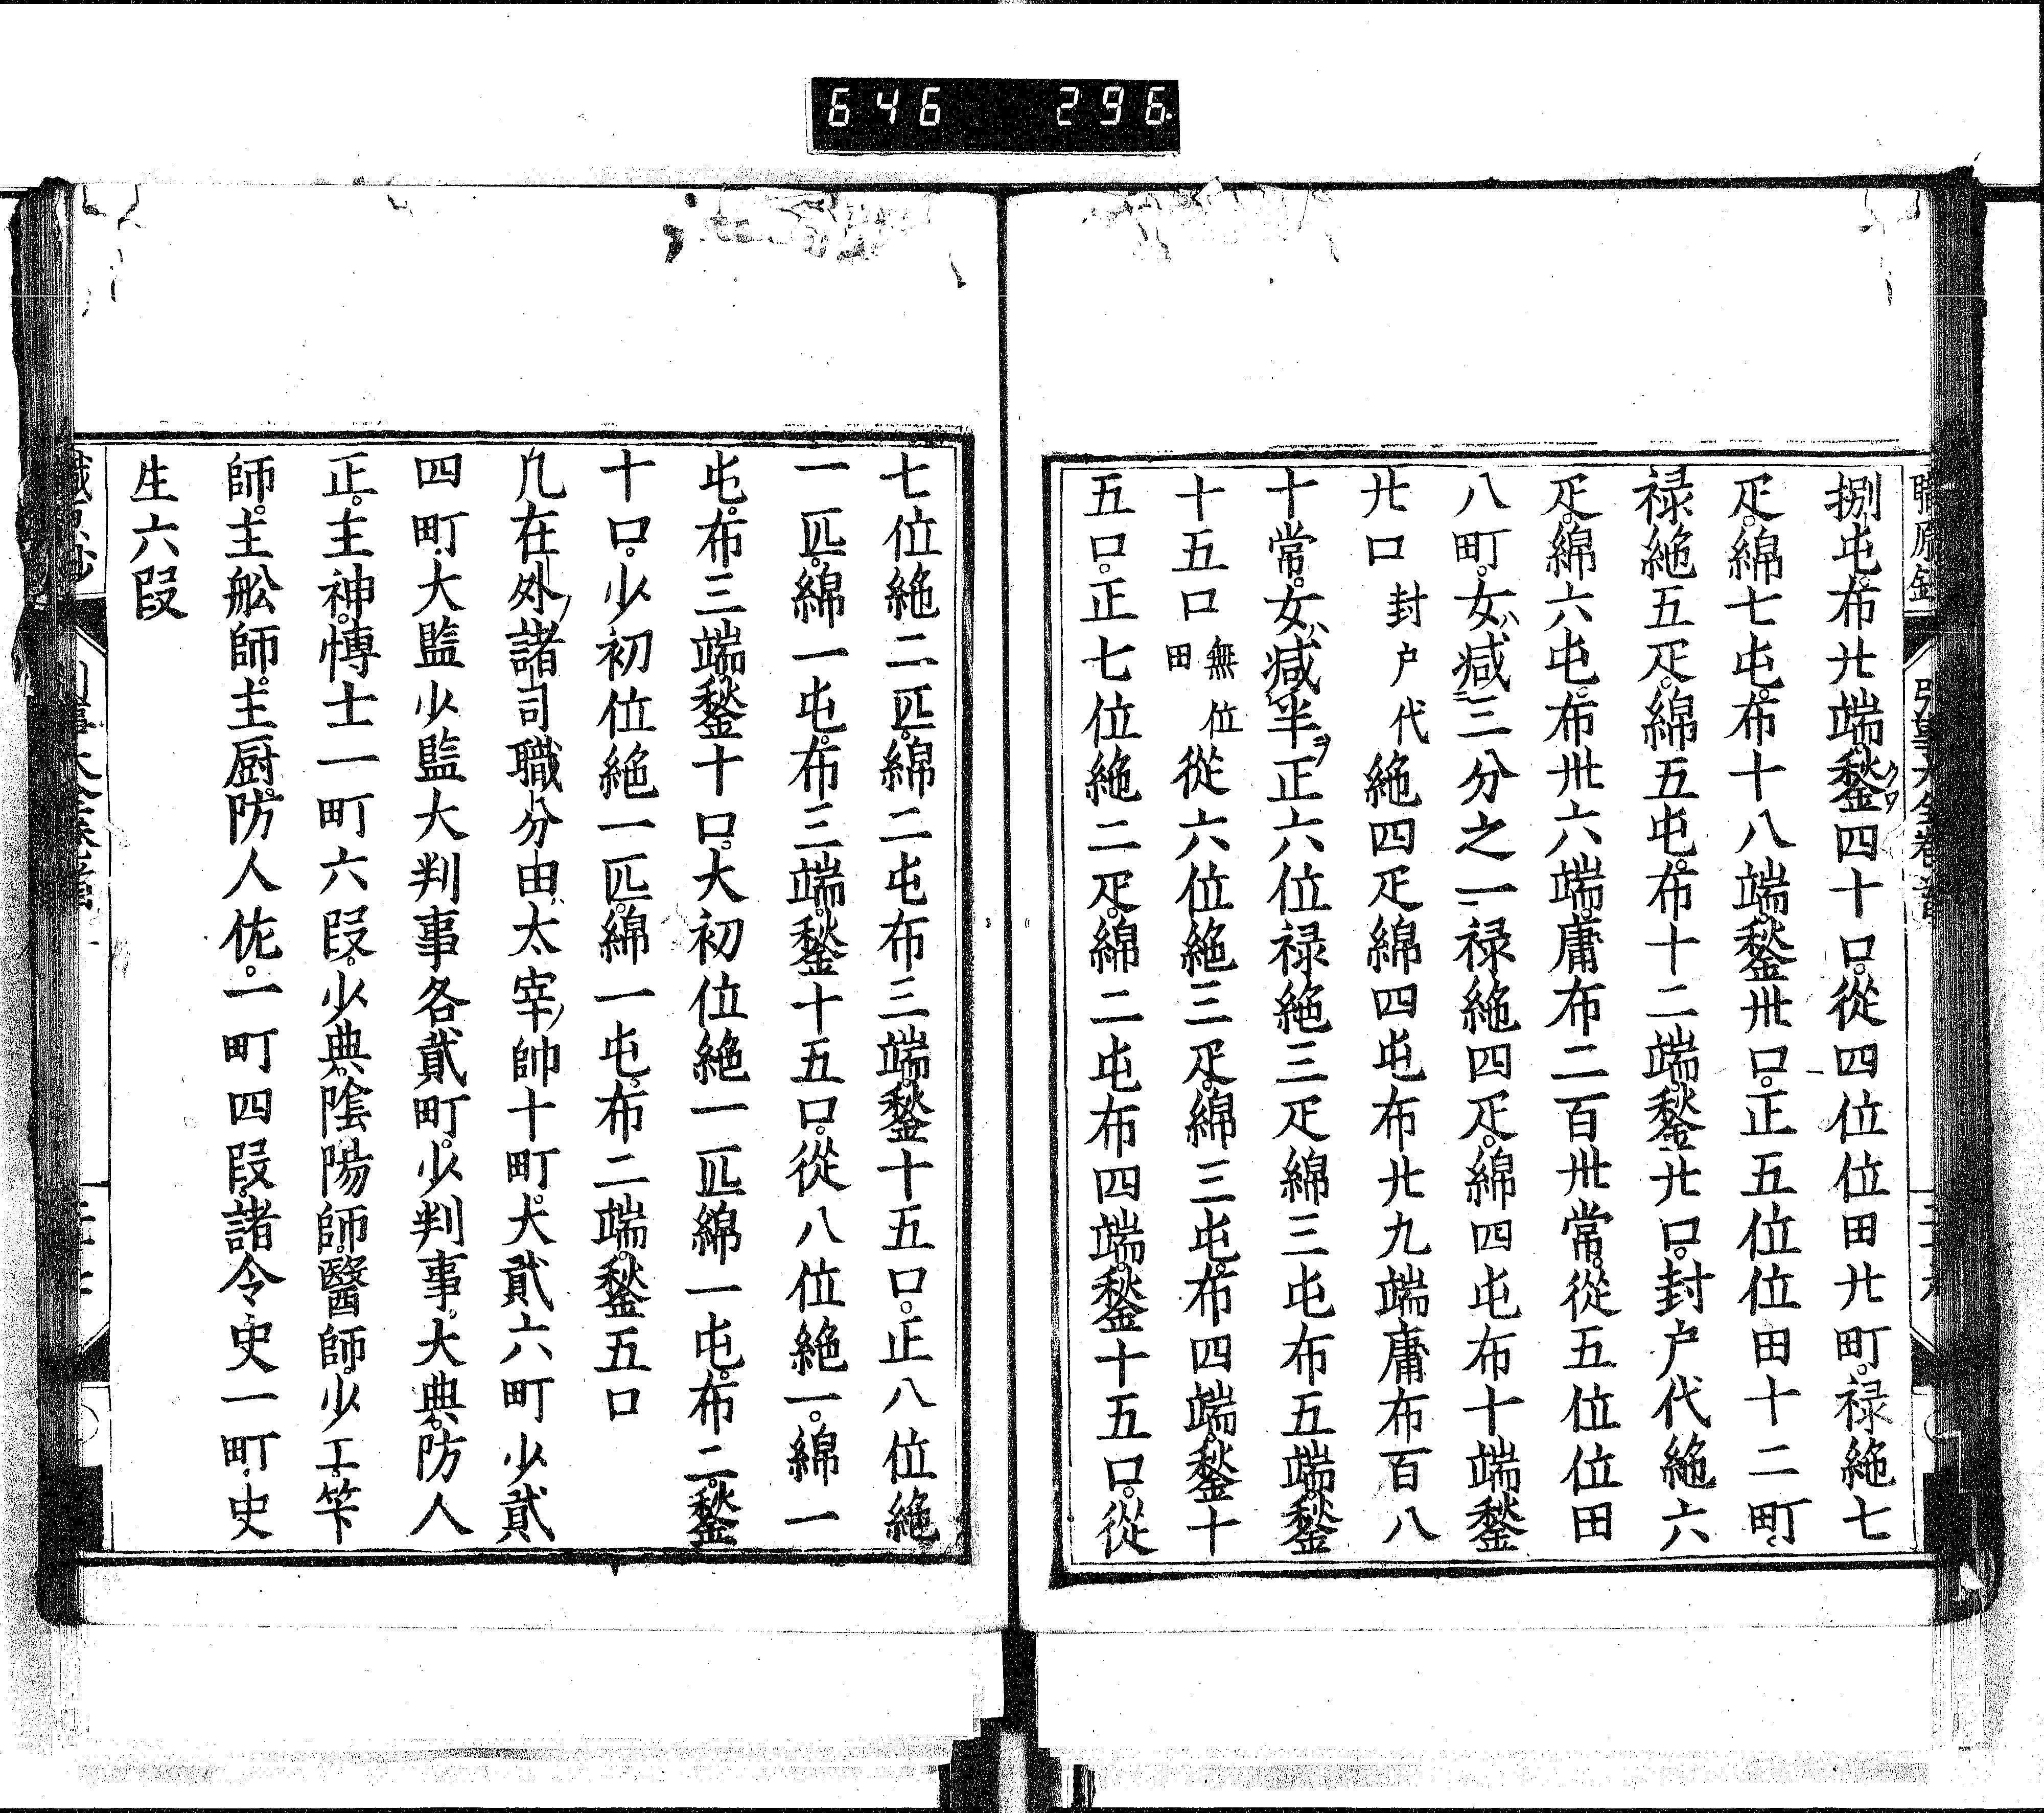 646 296
捌屯。布廿端。鍫四十口。從四位位田廿町。禄絁七
疋。綿七屯。布十八端。鍫卅口。正五位位田十二町。
禄絁五疋。綿五屯。布十二端。鍫廿口。封户代絁六
疋。綿六屯。布卅六端。庸布二百卅常。從五位位田
八町。女ハ減二三分之一禄絁四疋。綿四屯布十端鍫
廿口封户代絁四疋綿四屯布廿九端庸布百八
十常。女ハ減半ヲ正六位禄絁三疋綿三屯布五端。鍫
十五口無位田從六位絁三疋。綿三屯。布四端。鍫十
五口。正七位絁二疋。綿二屯布四端。鍫十五口。從
七位絁二匹。綿二屯布三端。鍫十五口。正八位絁
一匹。綿一屯。布三端。鍫十五口。從八位絁一。綿一
屯。布三端鍫十口。大初位絁一匹綿一屯。布二。鍫
十口。少初位絁一匹。綿一屯。布二端。鍫五口
凡在外ノ諸司職分由。太宰ノ帥十町。大貳六町少貳
四町。大監少監大判事各貳町。少判事。大典。防人
正。主神。博士一町六段。少典。陰陽師。醫師。少工。笇
師。主舩師。主厨。防人佐。一町四段。諸令史一町。史
生六段